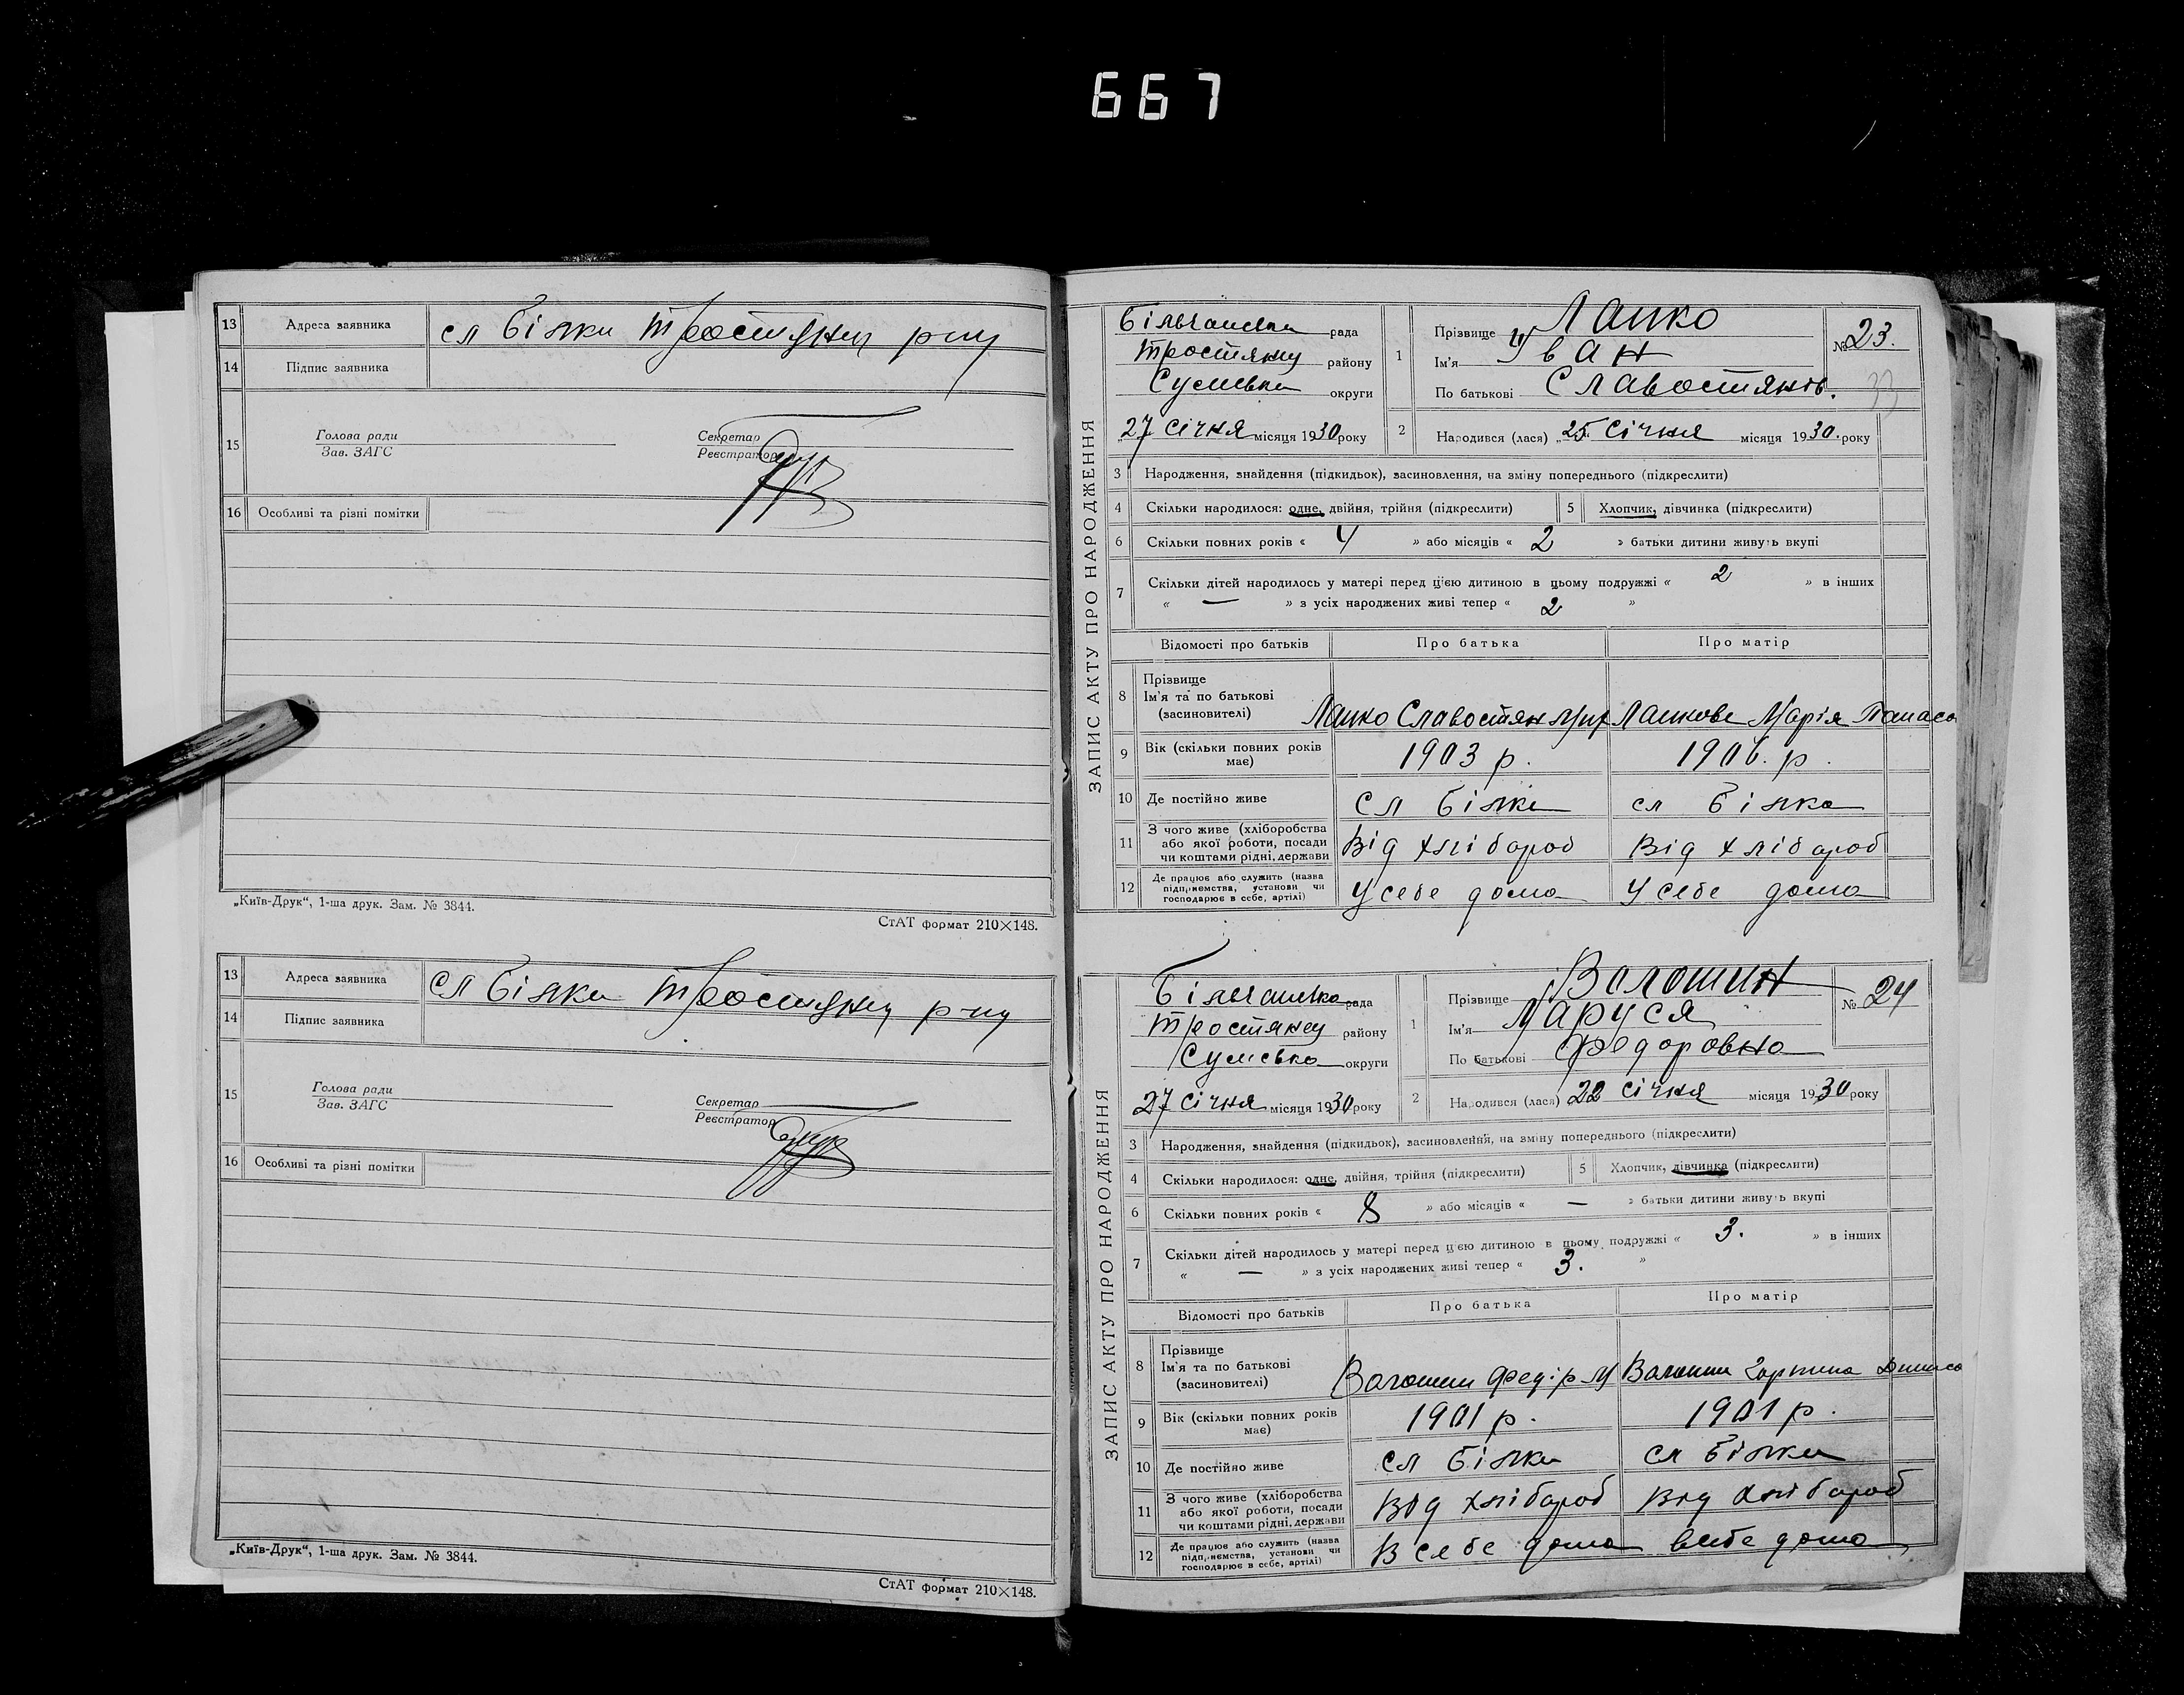 667
13 Адреса заявника сл Білки Тростянец р-ну
14 Підпис заявника
15 Голова ради Секретар
Зав. ЗАГС Реєстратор
16 Особливі та різні помітки
„Київ-Друк“, 1-ша друк. Зам. № 3844.
СтАТ формат 210×148.
13 Адреса заявника сл Білки Тростянец р-ну
14 Підпис заявника
15 Голова ради Секретар
Зав. ЗАГС Реєстратор
16 Особливі та різні помітки
„Київ-Друк“, 1-ша друк. Зам. № 3844.
СтАТ формат 210×148.
ЗАПИС АКТУ ПРО НАРОДЖЕННЯ
рада
Тростянец району
Сумська округи
27 Січня місяця 1930 року
1 Прізвище Лапко № 23.
Ім'я Іван
По батькові Славостянів. 33
2 Народився (лася) „25“ Січня місяця 1930. року
3 Народження, знайдення (підкидьок), засиновлення, на зміну попереднього (підкреслити)
4 Скільки народилося: одне, двійня, трійня (підкреслити) 5 Хлопчик, дівчинка (підкреслити)
6 Скільки повних років « 4 » або місяців « 2 » батьки дитини живуть вкупі
7 Скільки дітей народилось у матері перед цією дитиною в цьому подружжі « 2 » в інших
« — » з усіх народжених живі тепер « 2 »
Відомості про батьків Про батька Про матір
8 Прізвище
Ім'я та по батькові
(засиновителі) Лапко Славостян Мих Лапкова Марія Панасо
9 Вік (скільки повних років має) 1903 р. 1906. р.
10 Де постійно живе сл Білки сл Білка
11 З чого живе (хліборобства
або якої роботи, посади
чи коштами рідні, держави Від хлібароб Від хлібароб
12 Де працює або служить (назва
підприємства, установи чи
господарює в себе, артілі) У себе дома У себе дома
ЗАПИС АКТУ ПРО НАРОДЖЕННЯ
рада
Тростянец району
Сумська округи
27 Січня місяця 1930 року
1 Прізвище Волошин № 24
Ім'я Маруся
По батькові Федоровна
2 Народився (лася) 22 Січня місяця 1930 року
3 Народження, знайдення (підкидьок), засиновлення, на зміну попереднього (підкреслити)
4 Скільки народилося: одне, двійня, трійня (підкреслити) 5 Хлопчик, дівчинка (підкреслити)
6 Скільки повних років « 8 » або місяців « — » батьки дитини живуть вкупі
7 Скільки дітей народилось у матері перед цією дитиною в цьому подружжі « 3. » в інших
« — » з усіх народжених живі тепер « 3. »
Відомості про батьків Про батька Про матір
8 Прізвище
Ім'я та по батькові
(засиновителі) Волошин Федір М Волошин
9 Вік (скільки повних років має) 1901 р. 1901 р.
10 Де постійно живе сл Білки сл Білки
11 З чого живе (хліборобства
або якої роботи, посади
чи коштами рідні, держави Від хлібароб Від хлібароб
12 Де працює або служить (назва
підприємства, установи чи
господарює в себе, артілі) В себе дома в себе дома